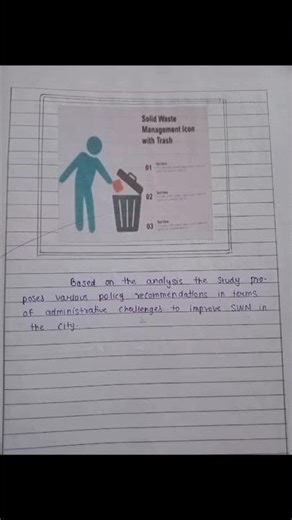 Solid Waste
Management Icon
with Trash
01
02
03
Based on the analysis the study pro-
poses various policy recommendations in terms
of administrative challenges to improve SWM in
the city.